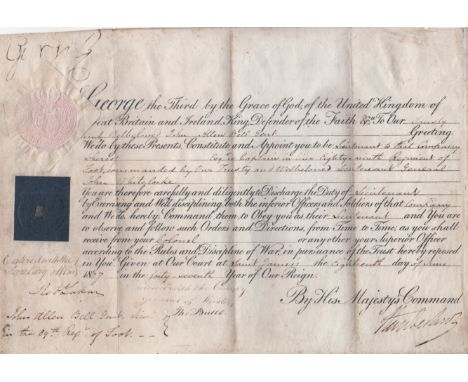 George the Third by the Grace of God, of the United Kingdom of
Great Britain and Ireland, King, Defender of the Faith &c. To Our Trusty
and Wellbeloved John Allen Bell Gent Greeting
We do by these Presents, Constitute and Appoint you to be Lieutenant to that company
whereof Esq is Captain in our Eighty ninth Regiment of
Foot commanded by Our Trusty and Wellbeloved Lieutenant General
John Whitelocke
You are therefore carefully and diligently to Discharge the Duty of Lieutenant
by Exercising and Well disciplining both the inferior Officers and Soldiers of that Company
and We do hereby Command them to Obey you as their Lieutenant and You are
to observe and follow such Orders and Directions, from Time to Time, as you shall
receive from your Colonel or any other your Superior Officer
according to the Rules and Discipline of War, in pursuance of the Trust hereby reposed
in You Given at Our Court at Saint James's the Eighteenth day of June
1807 in the forty seventh Year of Our Reign.
By His Majesty's Command
John Allen Bell Gent
in the 89th Regt of Foot